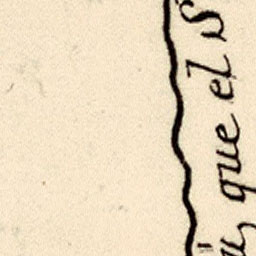 que el S